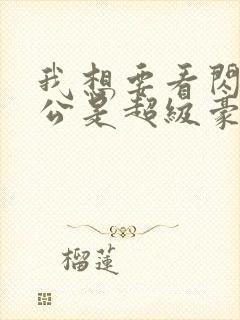 我想要看閃
公是超級豪
榴蓮